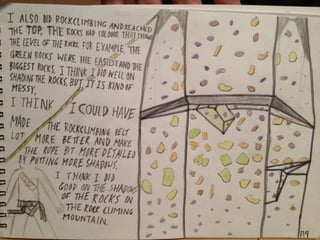 I ALSO DID ROCKCLIMBING AND REACHED
THE TOP. THE ROCKS HAD COLOURS THAT
THE LEVEL OF THE ROCKS. FOR EXAMPLE, THE
GREEN ROCKS WERE THE EASIEST AND THE
BIGGEST ROCKS. I THINK I DID WELL ON
SHADING THE ROCKS, BUT IT IS KIND OF
MESSY.
I THINK I COULD HAVE
MADE THE ROCKCLIMBING BELT
LOT MORE BETTER AND MAKE
THE ROPE BIT MORE DETAILED
BY PUTTING MORE SHADOWS.
I THINK I DID
GOOD ON THE SHADOWS
OF THE ROCKS IN
THE ROCK CLIMING
MOUNTAIN.
P.9